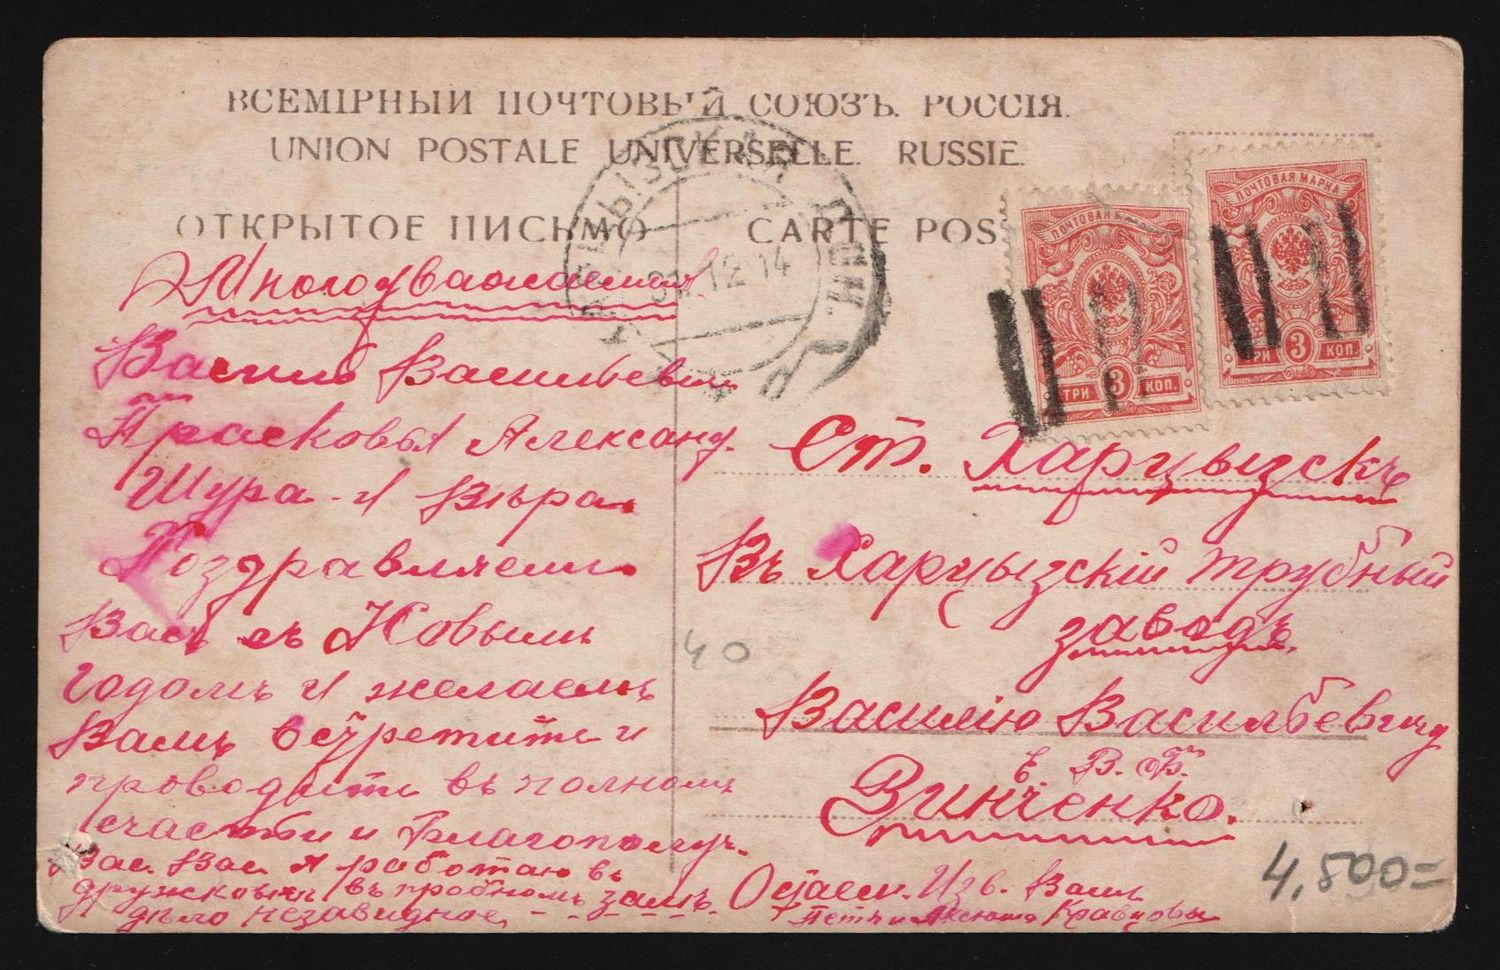 ВСЕМІРНЫЙ ПОЧТОВЫЙ СОЮЗЪ. РОССІЯ.
UNION POSTALE UNIVERSELLE. RUSSIE.
ОТКРЫТОЕ ПИСЬМО
CARTE POS
ПОЧТОВАЯ МАРКА
ТРИ 3 КОП.
ПОЧТОВАЯ МАРКА
ТРИ 3 КОП.
12 14
Многоуважаемые
Василій Васильевич
Прасковья Александ.
Шура и Вѣра
Поздравляем
Вас съ Новымъ
годомъ и желаемъ
Вамъ встретить и
проводить въ полномъ
счастьи и благополуч.
Вас. Вас. Я работаю въ
въ пробномъ
дѣло незавидное
Остаем. Изв. Вамъ
Петь и Аксюша Кравцовы
Ст. Харцызскъ
Въ Харцызскій трубный
заводъ.
Василію Васильевичу
Е. В. Б.
Зинченко.
40
4,500=